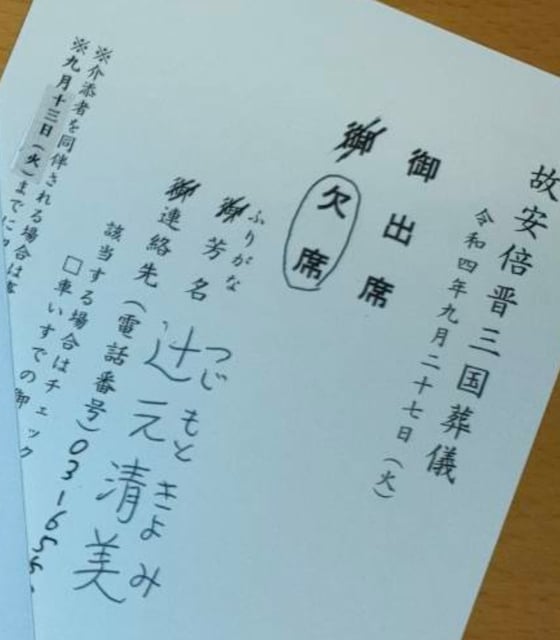 故安倍晋三国葬儀
令和四年九月二十七日(火)
御出席
御欠席
ふりがな つじもときよみ
御芳名 辻元清美
御連絡先(電話番号)03-655
該当する場合はチェック
□車いすでの御
※介添者を同伴される場合は
※九月十三日(火)までに